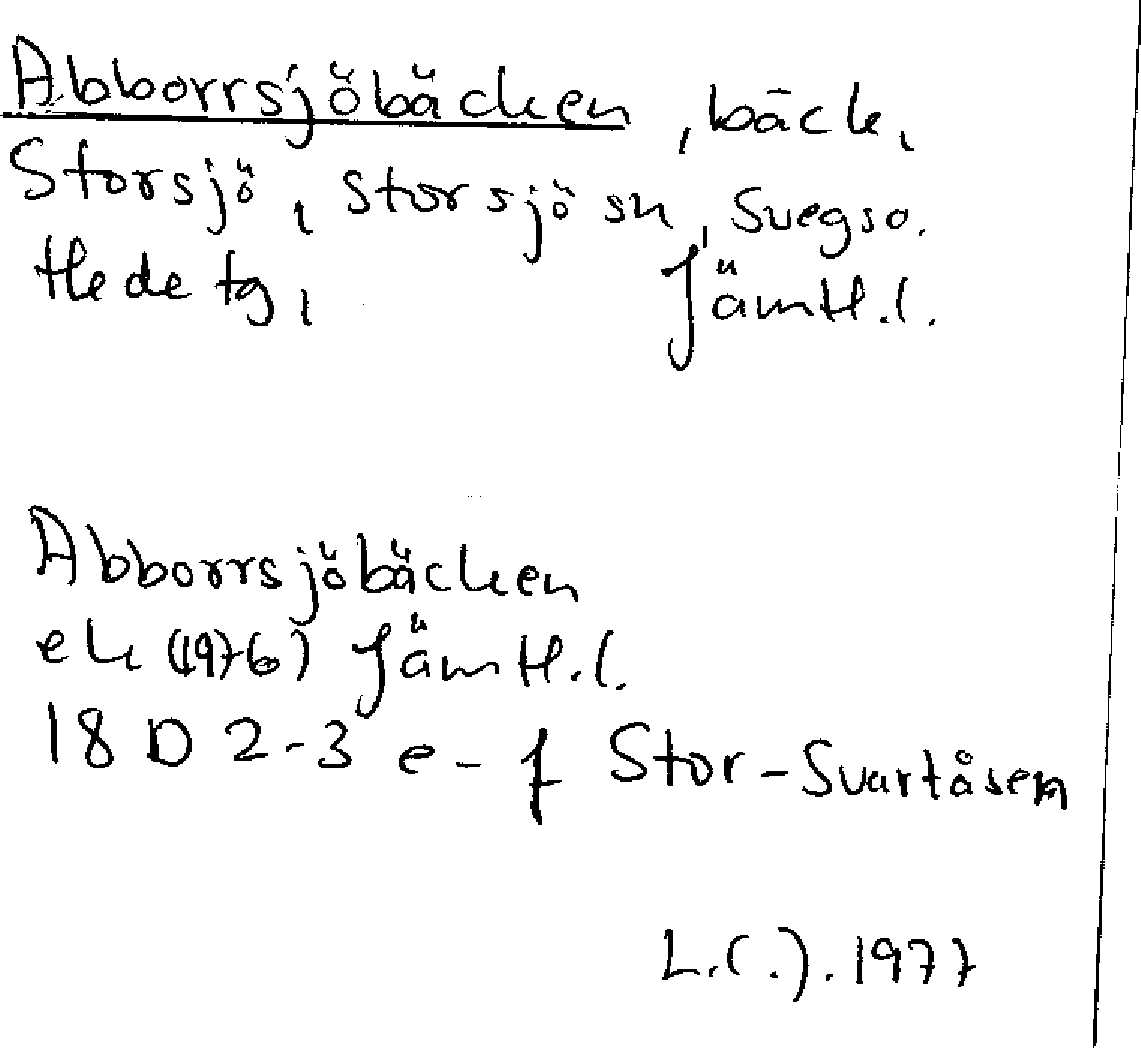 Abborrsjöbäcken, bäck,
Storsjö, Storsjö sn, Svegs o.
Hede tg, Jämtl.l.
Abborrsjöbäcken
ek (1976) Jämtl.l.
18 D 2-3 e-f Stor-Svartåsen
1977